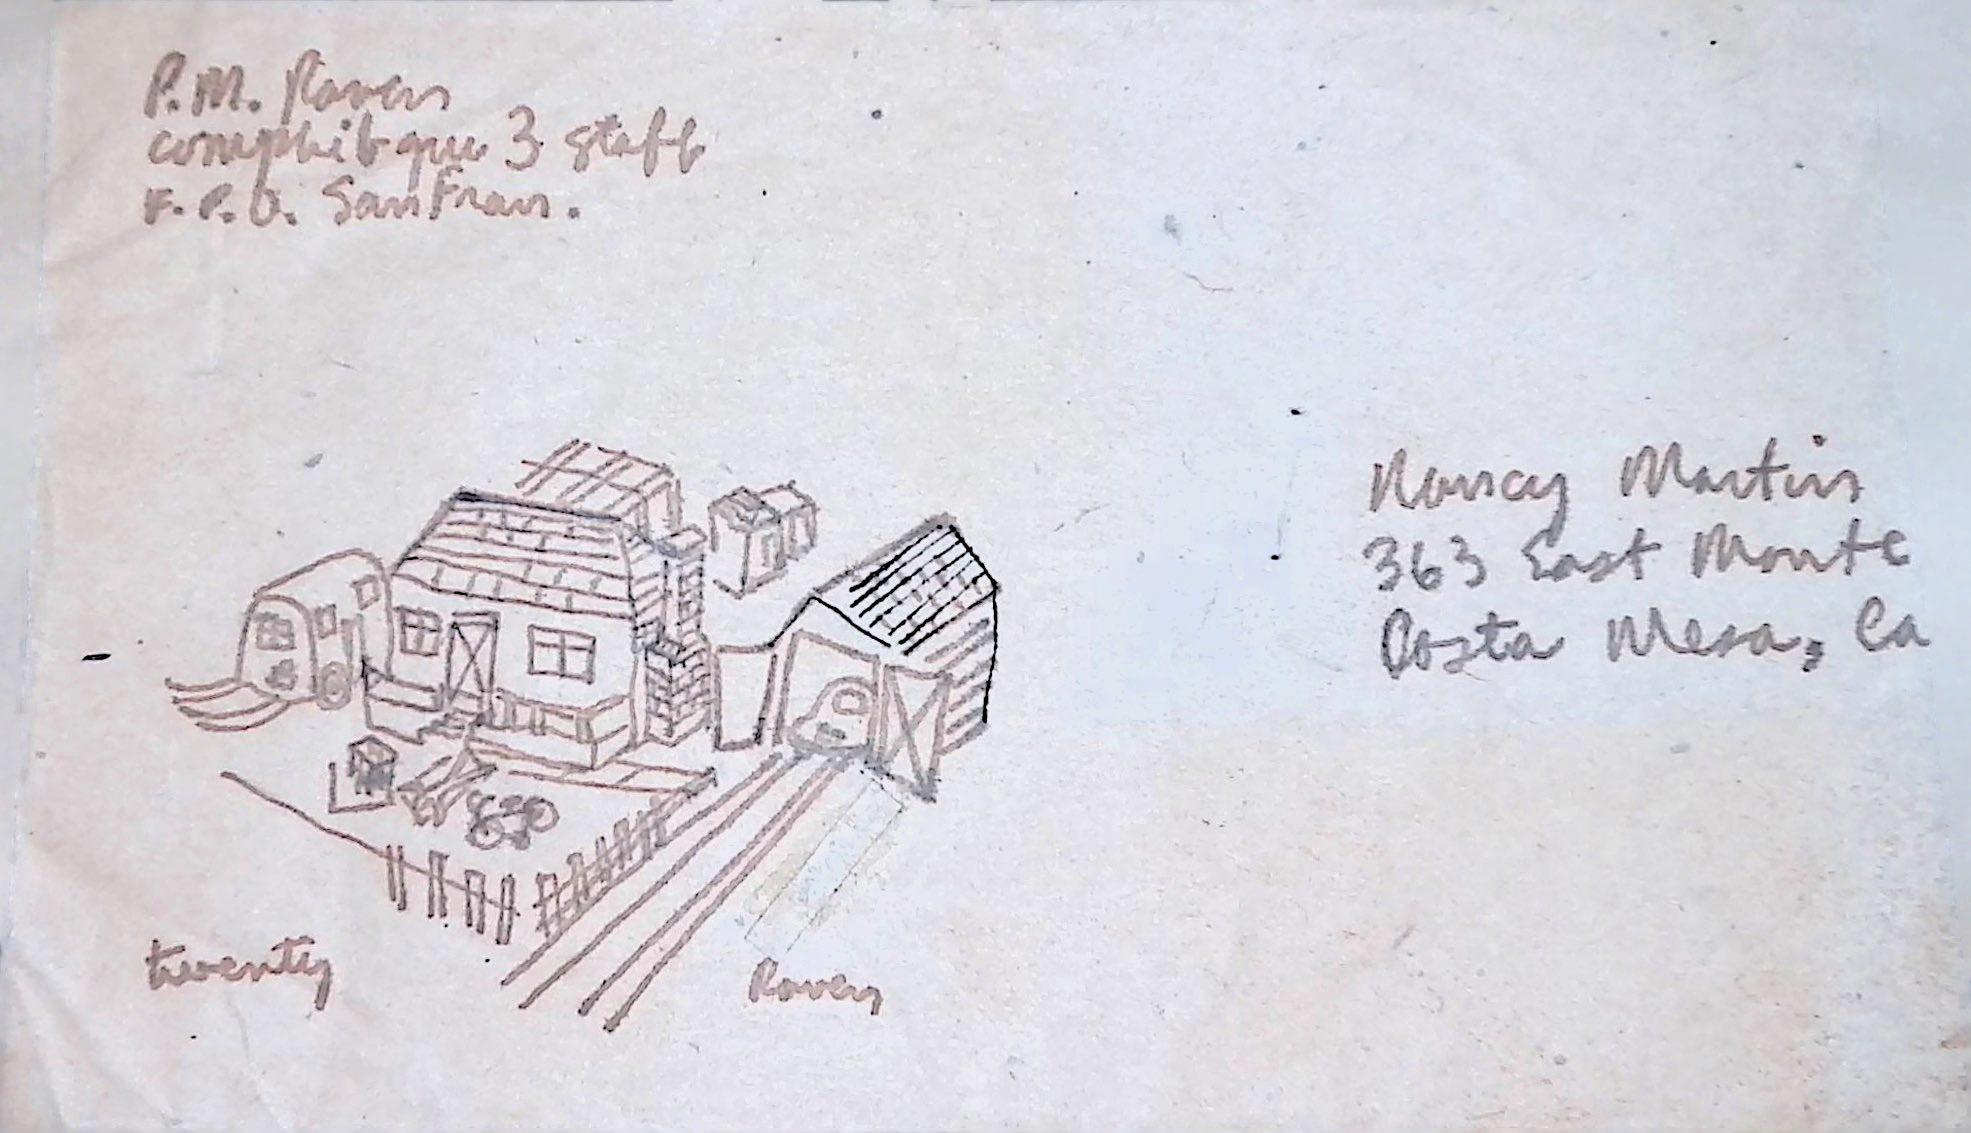 P.M. Raven
comphibgru 3 staff
F.P.O. San Fran.
Nancy Martin
363 East Monte
Costa Mesa, Ca
twenty
Raven